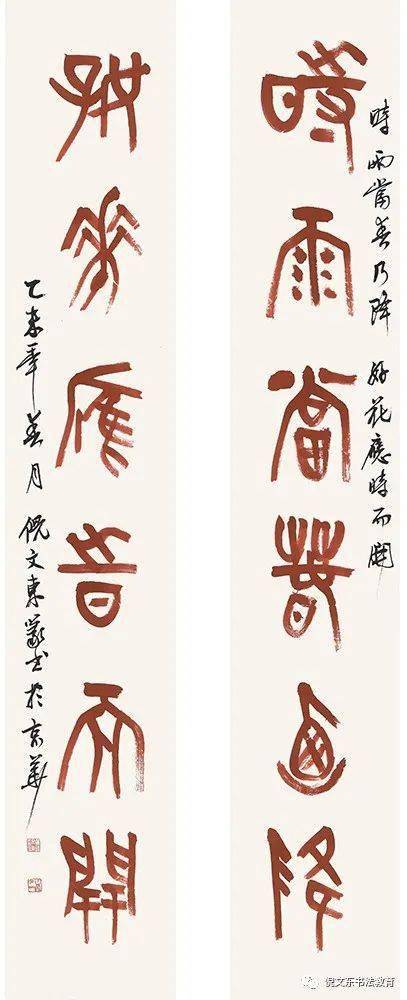 時雨當春乃降 好花應時而開
時雨當春迺降
好花應時而開
乙未年春月 倪文東篆书於京華
倪文东书法教育